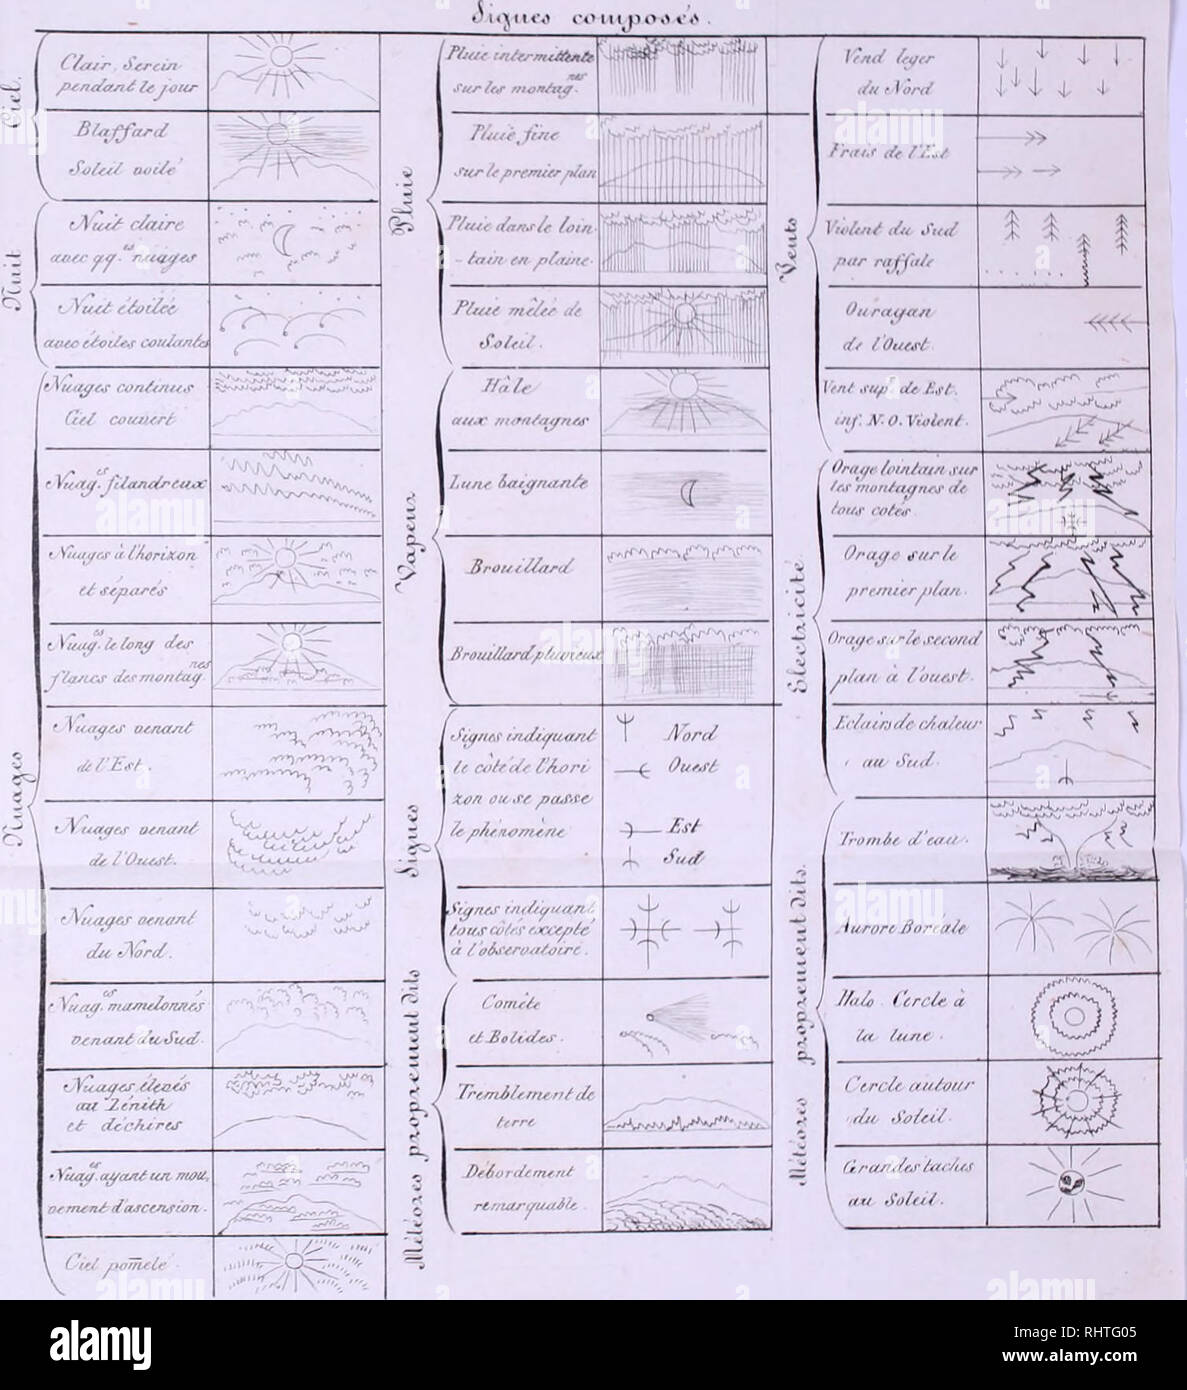 Signes composés.
Ciel.
Clair, Serein
pendant le jour
Blaffard
Soleil voilé
Nuit
Nuit claire
avec qq.es nuages
Nuit étoilée
avec étoiles coulantes
Nuages
Nuages continus
Ciel couvert
Nuag.es filandreux
Nuages à l'horizon
et séparés
Nuag.es le long des
flancs des montag.nes
Nuages venant
de l'Est.
Nuages venant
de l'Ouest.
Nuages venant
du Nord.
Nuag.es mamelonnés
venant du Sud.
Nuages élevés
au Zénith
et déchirés
Nuag.es ayant un mou-
vement d'ascension.
Ciel pomelé
Pluie
Pluie intermittente
sur les montag.nes
Pluie fine
sur le premier plan
Pluie dans le loin-
-tain en plaine.
Pluie mêlée de
Soleil.
Vapeur
Hâle
aux montagnes
Lune baignante
Brouillard
Brouillard pluvieux
Signes
Signes indiquant
le côté de l'hori
zon ou se passe
le phénomène
Nord
Ouest
Est
Sud
Signes indiquant
tous côtés excepté
à l'observatoire.
Météores proprement dits
Comète
et Bolides.
Tremblement de
terre
Débordement
remarquable.
Vents
Vend leger
du Nord
Frais de l'Est
Violent du Sud
par raffale
Ouragan
de l'Ouest.
Vent sup.r de Est.
inf. N.O. Violent.
Electricité
Orage lointain sur
les montagnes de
tous cotés
Orage sur le
premier plan.
Orage sur le second
plan à l'ouest.
Eclairs de chaleur
au Sud.
Météores proprement dits.
Trombe d'eau.
Aurore Boréale
Halo. Cercle à
la lune.
Cercle autour
du Soleil.
Grandes taches
au Soleil.
alamy
alamy
alamy
alamy
alamy
alamy
alamy
alamy
alamy
alamy
alamy
Image ID: RHTG05
www.alamy.com